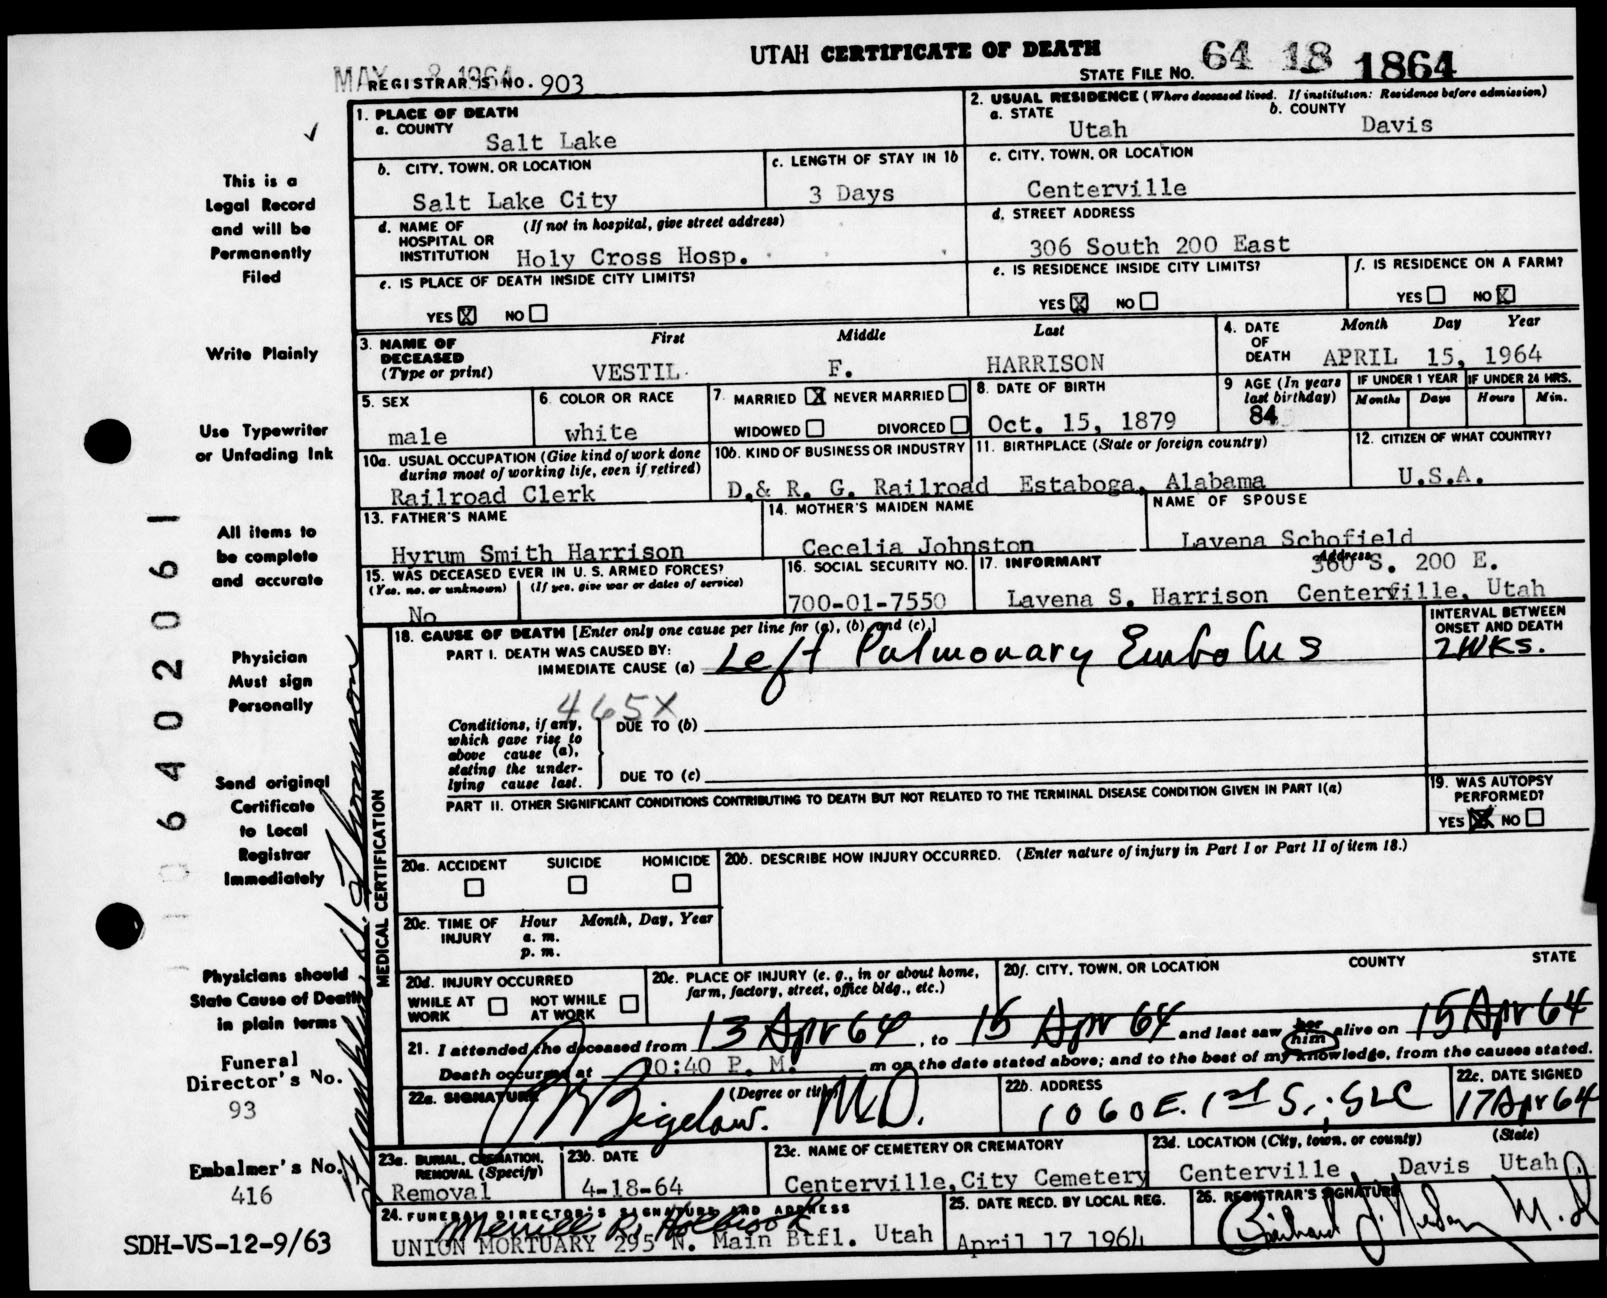 UTAH CERTIFICATE OF DEATH
MAY 8 1964
REGISTRAR'S NO. 903
STATE FILE NO. 64 18 1864
1. PLACE OF DEATH
a. COUNTY
Salt Lake
2. USUAL RESIDENCE (Where deceased lived. If institution: Residence before admission)
a. STATE b. COUNTY
Utah Davis
b. CITY, TOWN, OR LOCATION
Salt Lake City
c. LENGTH OF STAY IN 1b
3 Days
c. CITY, TOWN, OR LOCATION
Centerville
d. NAME OF HOSPITAL OR INSTITUTION (If not in hospital, give street address)
Holy Cross Hosp.
d. STREET ADDRESS
306 South 200 East
e. IS PLACE OF DEATH INSIDE CITY LIMITS?
YES X NO
e. IS RESIDENCE INSIDE CITY LIMITS?
YES X NO
f. IS RESIDENCE ON A FARM?
YES NO X
3. NAME OF DECEASED (Type or print)
First Middle Last
VESTIL F. HARRISON
4. DATE OF DEATH Month Day Year
APRIL 15, 1964
5. SEX
male
6. COLOR OR RACE
white
7. MARRIED X NEVER MARRIED
WIDOWED DIVORCED
8. DATE OF BIRTH
Oct. 15, 1879
9 AGE (In years last birthday)
84
IF UNDER 1 YEAR IF UNDER 24 HRS.
Months Days Hours Min.
10a. USUAL OCCUPATION (Give kind of work done during most of working life, even if retired)
Railroad Clerk
10b. KIND OF BUSINESS OR INDUSTRY
D.& R. G. Railroad
11. BIRTHPLACE (State or foreign country)
Estaboga, Alabama
12. CITIZEN OF WHAT COUNTRY?
U.S.A.
13. FATHER'S NAME
Hyrum Smith Harrison
14. MOTHER'S MAIDEN NAME
Cecelia Johnston
NAME OF SPOUSE
Lavena Schofield
15. WAS DECEASED EVER IN U. S. ARMED FORCES?
(Yes, no, or unknown) (If yes, give war or dates of service)
No
16. SOCIAL SECURITY NO.
700-01-7550
17. INFORMANT Address
Lavena S. Harrison
360 S. 200 E.
Centerville, Utah
18. CAUSE OF DEATH [Enter only one cause per line for (a), (b), and (c).]
PART I. DEATH WAS CAUSED BY:
IMMEDIATE CAUSE (a) Left Pulmonary Embolus
INTERVAL BETWEEN ONSET AND DEATH
2 WKS.
465X
Conditions, if any, which gave rise to above cause (a), stating the underlying cause last.
DUE TO (b)
DUE TO (c)
PART II. OTHER SIGNIFICANT CONDITIONS CONTRIBUTING TO DEATH BUT NOT RELATED TO THE TERMINAL DISEASE CONDITION GIVEN IN PART I(a)
19. WAS AUTOPSY PERFORMED?
YES X NO
20a. ACCIDENT SUICIDE HOMICIDE
20b. DESCRIBE HOW INJURY OCCURRED. (Enter nature of injury in Part I or Part II of item 18.)
20c. TIME OF INJURY Hour Month, Day, Year
a. m.
p. m.
20d. INJURY OCCURRED
WHILE AT WORK NOT WHILE AT WORK
20e. PLACE OF INJURY (e. g., in or about home, farm, factory, street, office bldg., etc.)
20f. CITY, TOWN, OR LOCATION COUNTY STATE
21. I attended the deceased from 13 Apr 64, to 15 Apr 64 and last saw her him alive on 15 Apr 64
Death occurred at 10:40 P. M. m on the date stated above; and to the best of my knowledge, from the causes stated.
22a. SIGNATURE (Degree or title)
Bigelow. M.D.
22b. ADDRESS
1060 E. 1st S., SLC
22c. DATE SIGNED
17 Apr 64
23a. BURIAL, CREMATION, REMOVAL (Specify)
Removal
23b. DATE
4-18-64
23c. NAME OF CEMETERY OR CREMATORY
Centerville,City Cemetery
23d. LOCATION (City, town, or county) (State)
Centerville, Davis Utah
24. FUNERAL DIRECTOR'S SIGNATURE AND ADDRESS
Merrill R. Holbrook
UNION MORTUARY 295 N. Main Btfl. Utah
25. DATE RECD. BY LOCAL REG.
April 17 1964
26. REGISTRAR'S SIGNATURE
M.D.
This is a
Legal Record
and will be
Permanently
Filed
Write Plainly
Use Typewriter
or Unfading Ink
All items to
be complete
and accurate
Physician
Must sign
Personally
Send original
Certificate
to Local
Registrar
Immediately
Physicians should
State Cause of Death
in plain terms
Funeral
Director's No.
93
Embalmer's No.
416
SDH-VS-12-9/63
MEDICAL CERTIFICATION
06402061